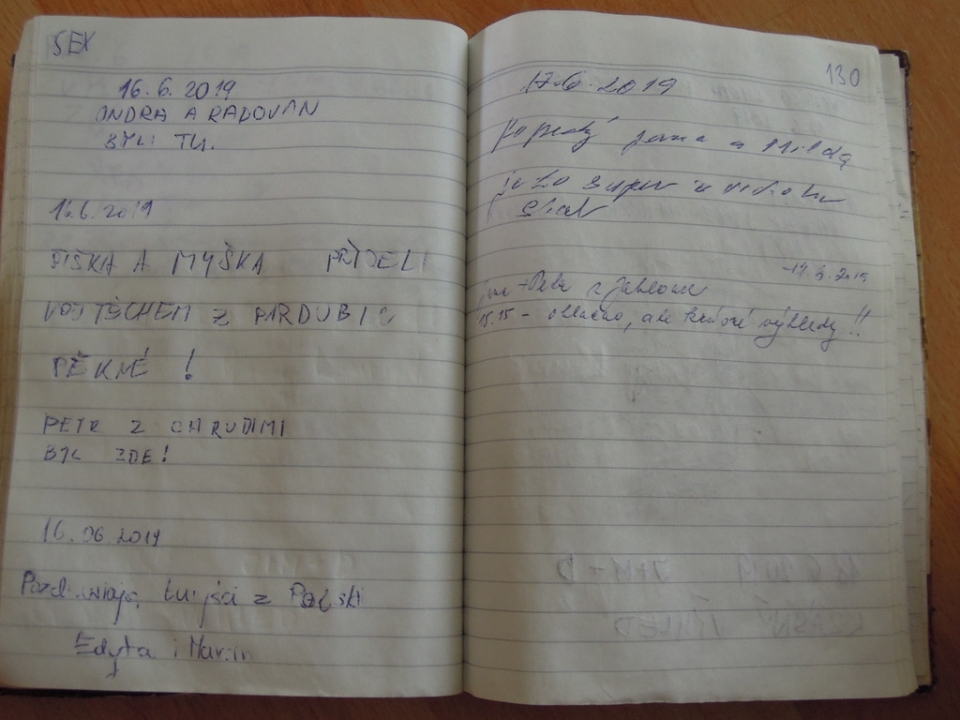 SEX
16.6.2019
ONDRA A RADOVAN
BYLI TU.
16.6.2019
A MYŠKA PŘIJELI
VOJTĚCHEM Z PARDUBIC
PĚKNÉ !
PETR Z CHRUDIMI
BYL ZDE!
16.06.2019
Pozdrawiają turyści z Polski
Edyta i Marcin
130
17.6.2019
Jana a Milda
je to super a
- 17.6.2019
z Jablonce
15.15 - oblačno, ale krásné výhledy !!